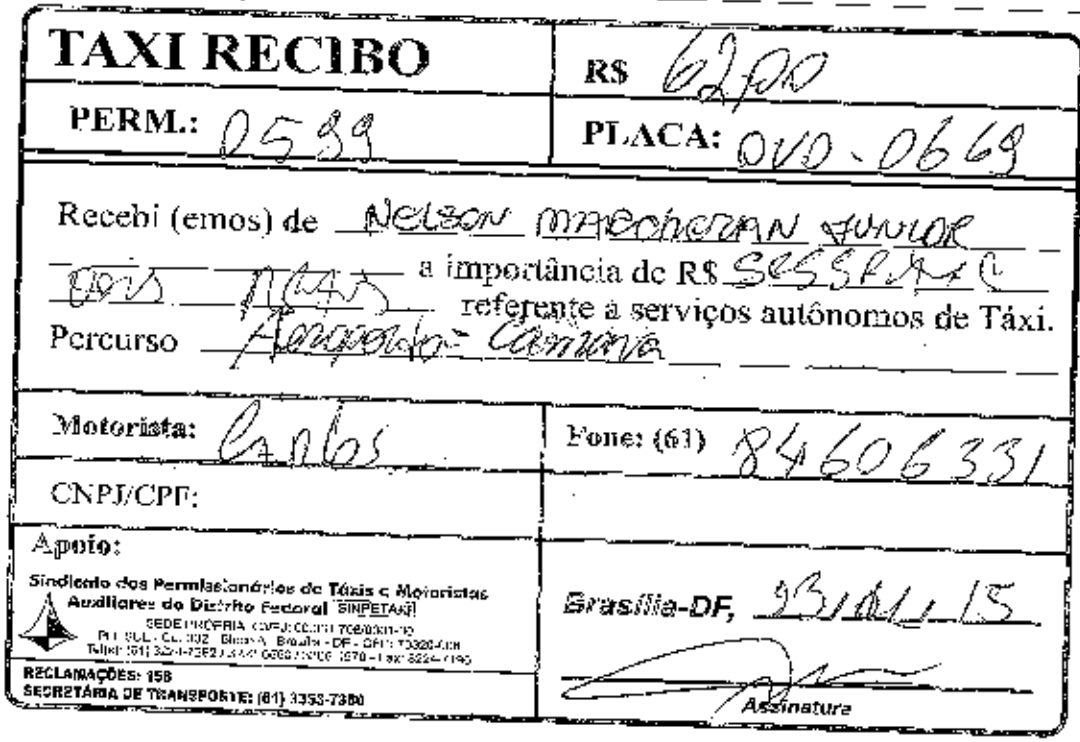 TAXI RECIBO
R$ 62,00
PERM.: 0599
PLACA: OVO-0669
Recebi (emos) de Nelson Marchezan Junior
a importância de R$ Sessenta e
Dois Reais referente a serviços autônomos de Táxi.
Percurso Aeroporto - Camara
Motorista: Carlos
Fone: (61) 84606331
CNPJ/CPF:
Apoio:
Sindicato dos Permissionários de Táxis e Motoristas
Auxiliares do Distrito Federal SINPETAXI
SEDE PRÓPRIA
RECLAMAÇÕES: 156
SECRETÁRIA DE TRANSPORTE: (61)
Brasília-DF, 15
Assinatura